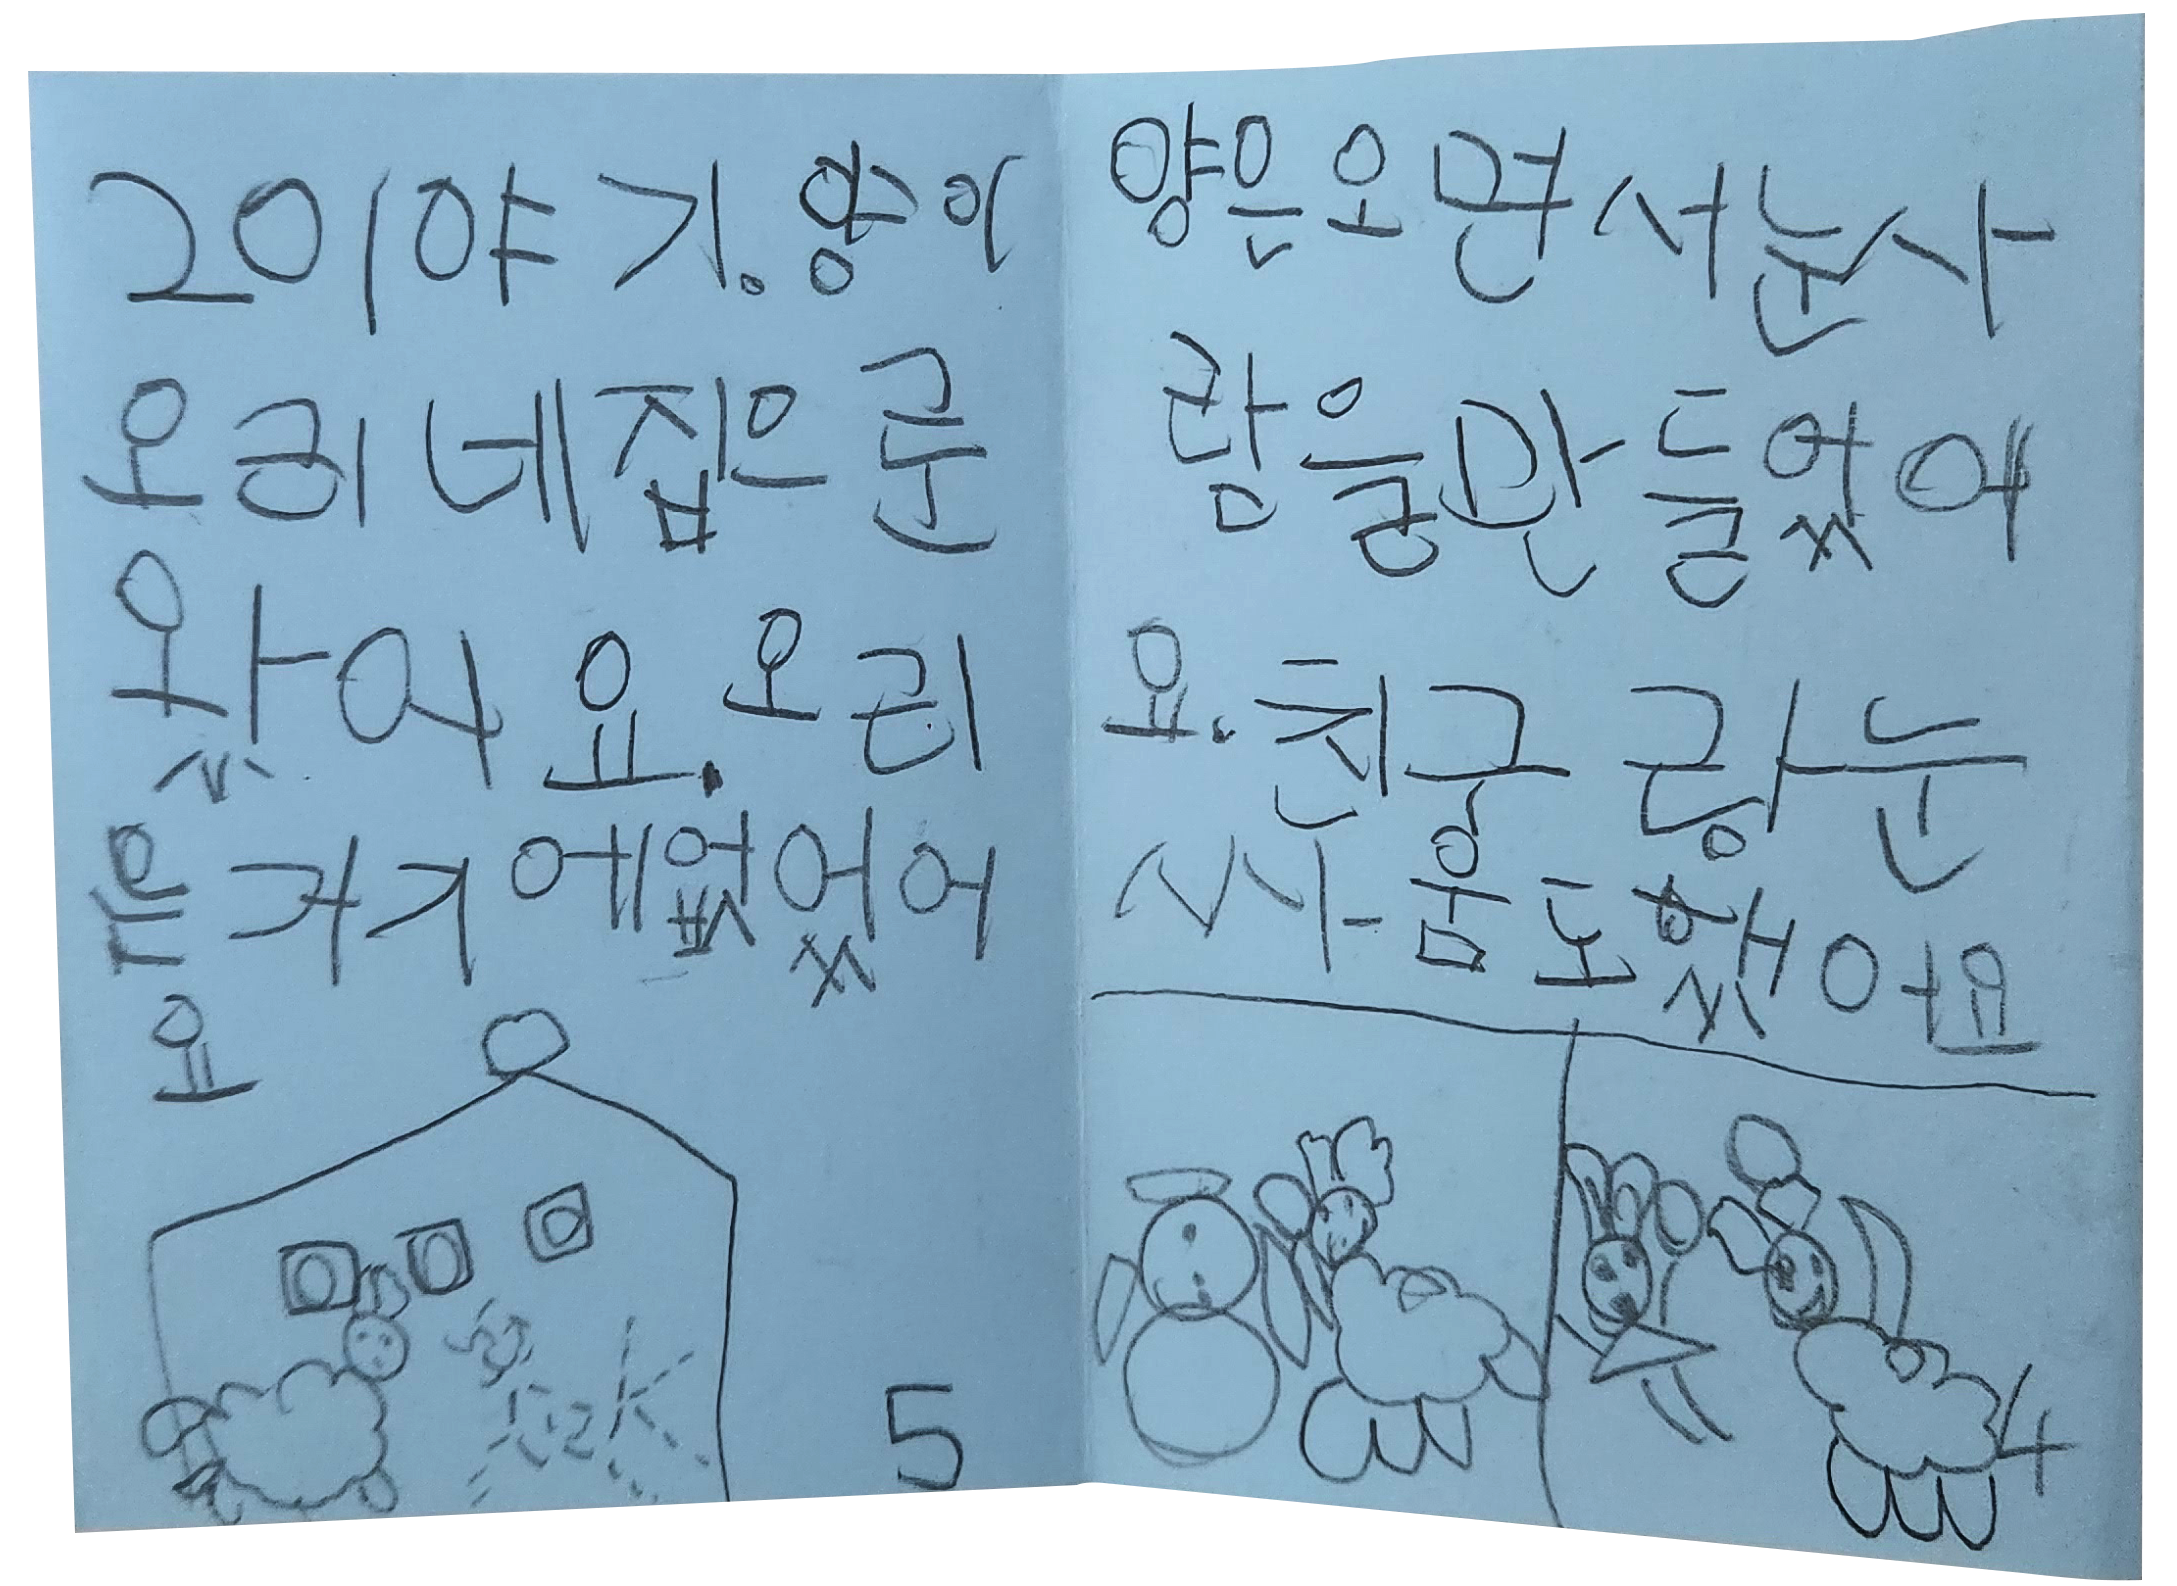 2이야기. 양이
오리네집으룬
왔어요. 오리
거기에없었어
요
5
양은오면서눈사
람을만들었어
요. 친궁랑눈
싸움도했어요
4